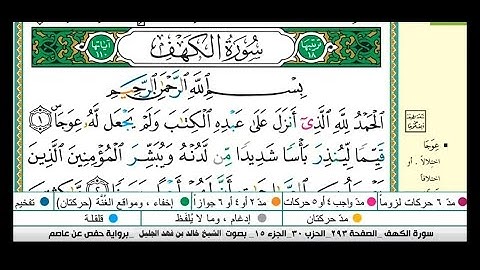 ترتيبها ١٨
سُورَةُ الكَهْفِ
آياتها ١١٠
بِسْمِ اللَّهِ الرَّحْمَٰنِ الرَّحِيمِ
الْحَمْدُ لِلَّهِ الَّذِي أَنزَلَ عَلَىٰ عَبْدِهِ الْكِتَابَ وَلَمْ يَجْعَل لَّهُ عِوَجًا ١
قَيِّمًا لِّيُنذِرَ بَأْسًا شَدِيدًا مِّن لَّدُنْهُ وَيُبَشِّرَ الْمُؤْمِنِينَ الَّذِينَ
عِوَجًا
اختلالاً، أو
اختلافاً
مدّ ٦ حركات لزوماً
مدّ ٢ أو ٤ أو ٦ جوازاً
إخفاء، ومواقع الغُنَّة (حركتان)
تفخيم
مدّ واجب ٤ أو ٥ حركات
مدّ حركتان
إدغام، وما لا يُلفَظ
قلقلة
سورة الكهف _ الصفحة ٢٩٣_ الحزب ٣٠_ الجزء ١٥_ بصوت الشيخ خالد بن فهد الجليل _ برواية حفص عن عاصم